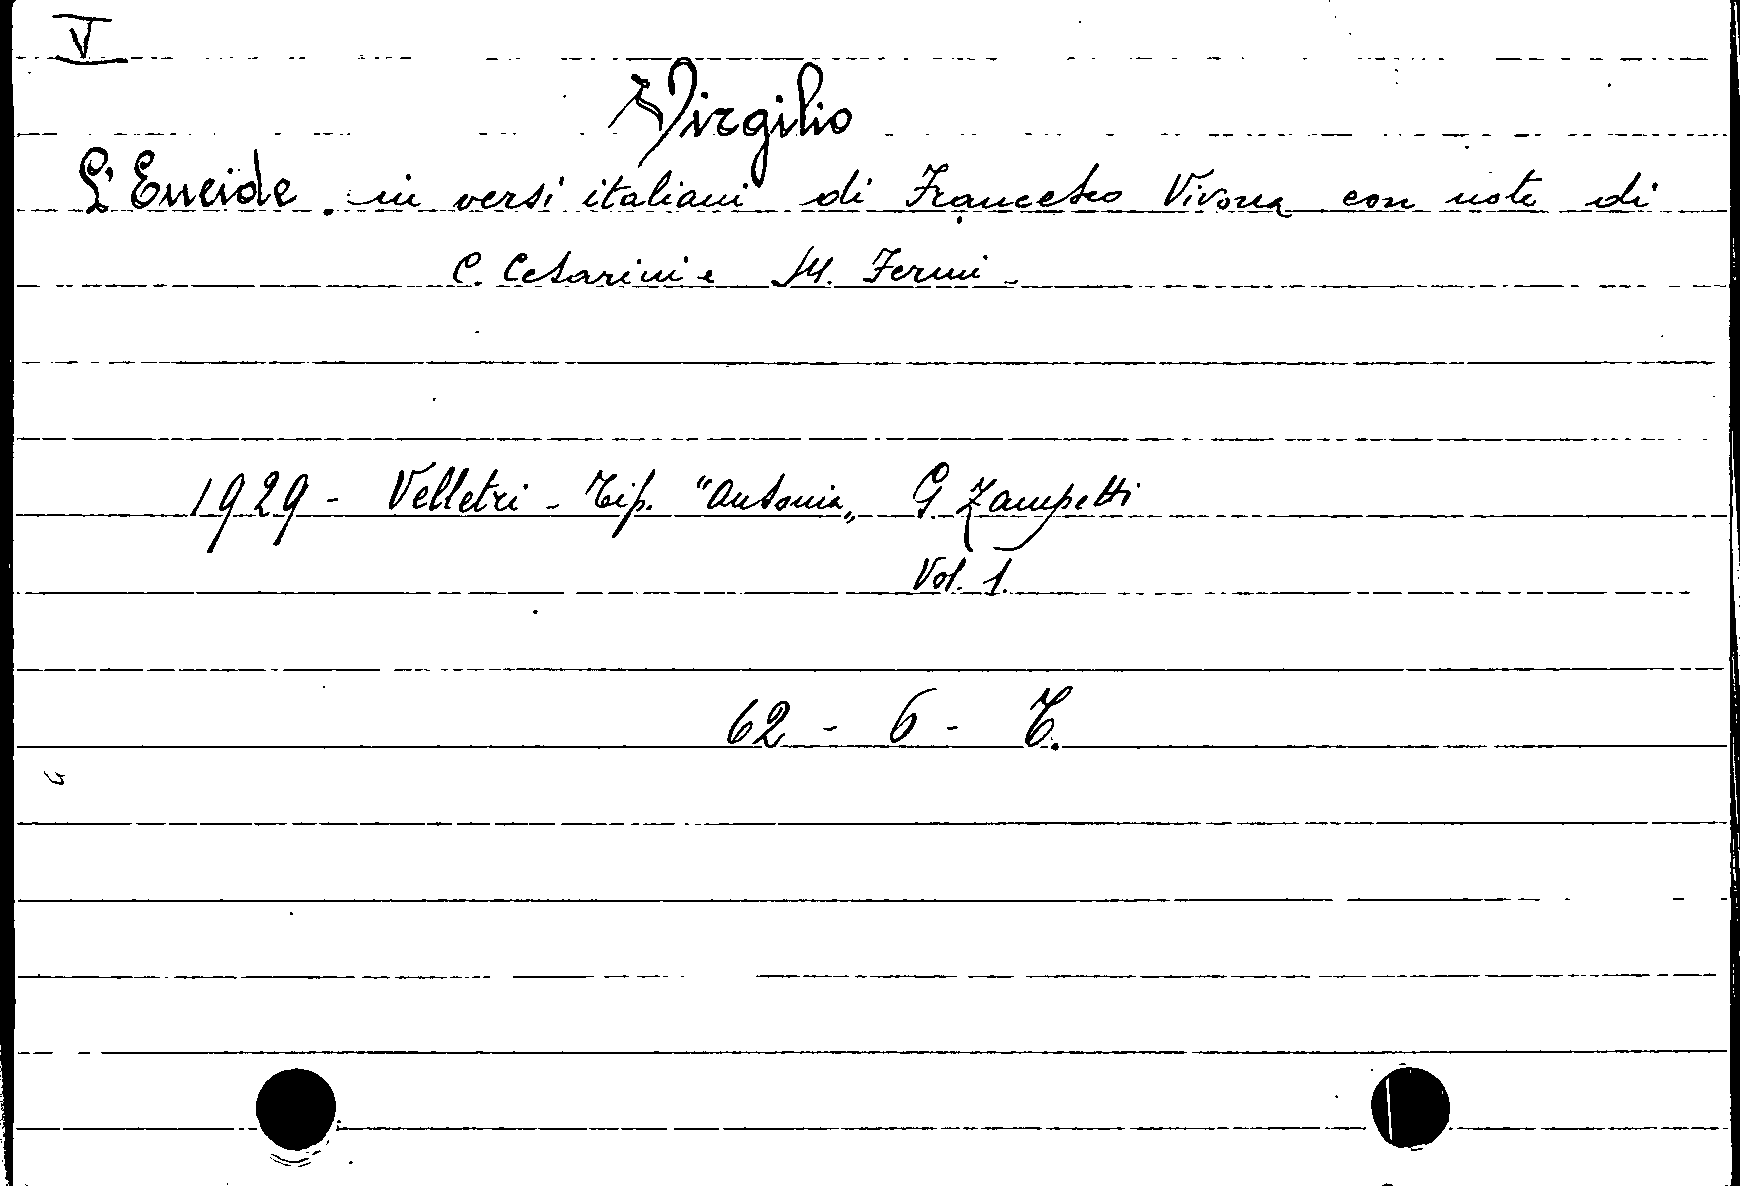 V
Virgilio
L'Eneide. in versi italiani di Francesco Vivona con note di
C. Cesarini e M. Fermi.
1929 - Velletri - Tip. "Antonia„ G. Zampetti
Vol. 1.
62 - 6 - T.